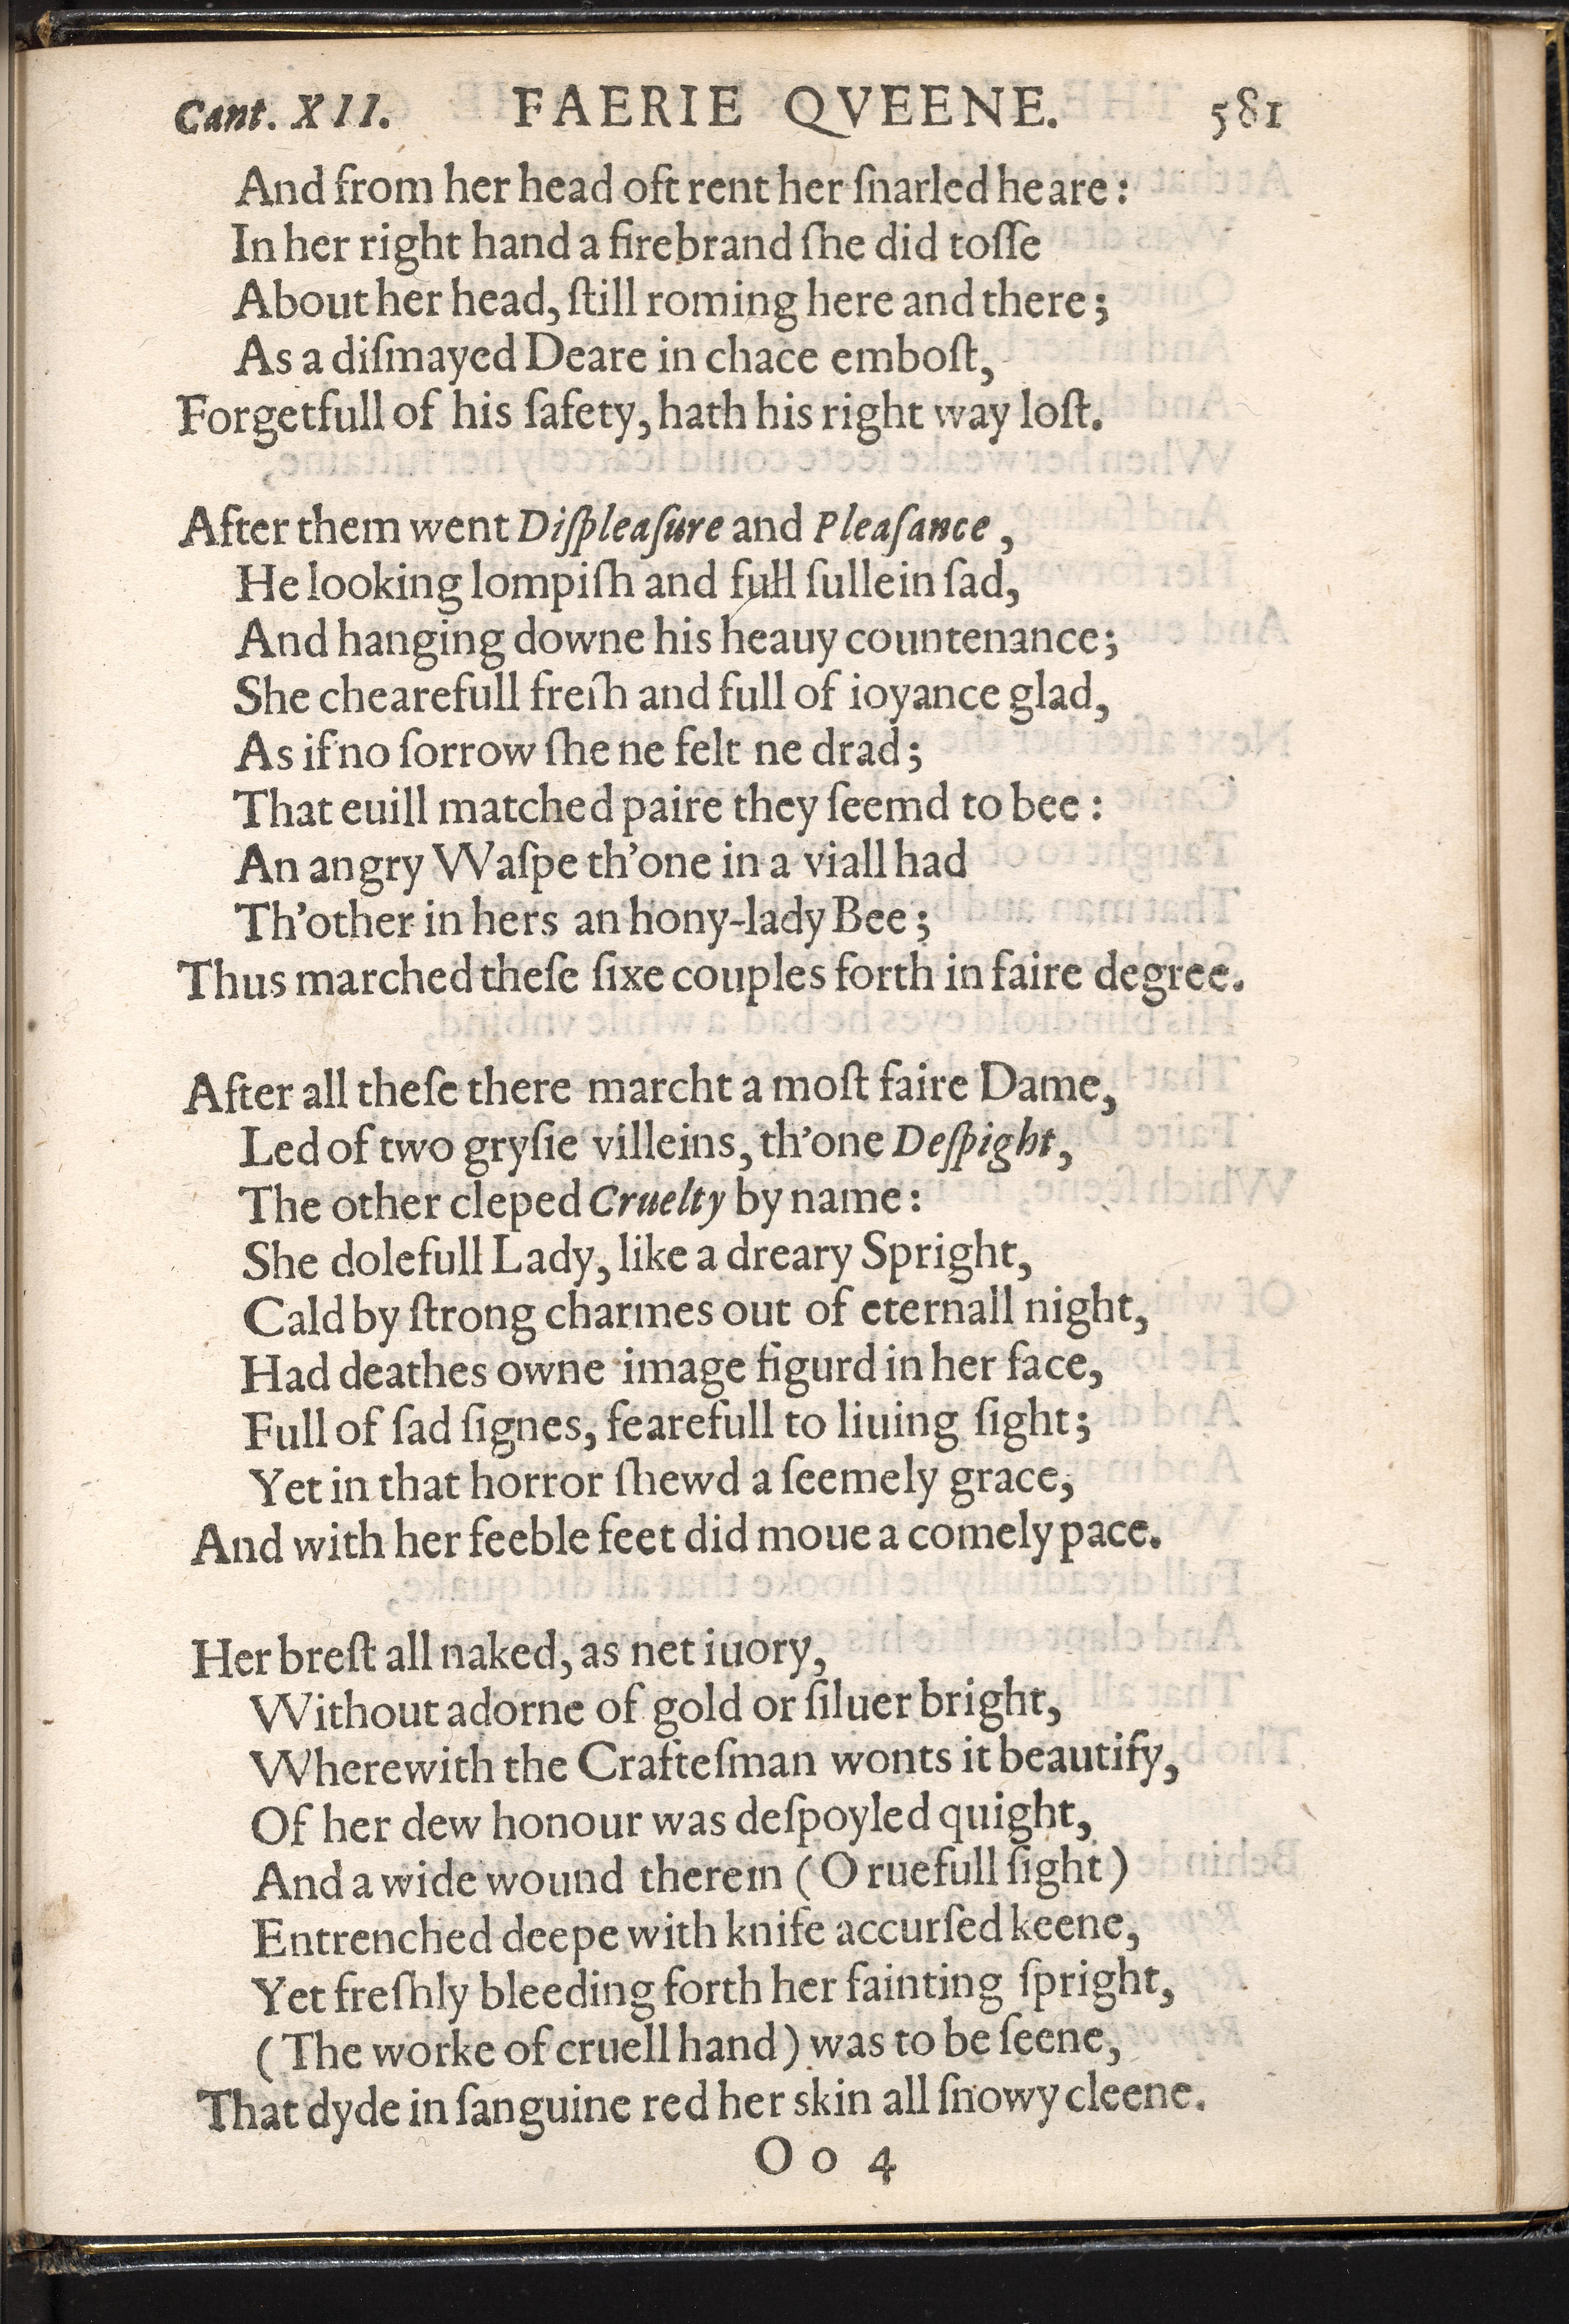 Cant. XII. FAERIE QVEENE. 581
And from her head oft rent her ſnarled heare:
In her right hand a firebrand ſhe did toſſe
About her head, ſtill roming here and there;
As a diſmayed Deare in chace emboſt,
Forgetfull of his ſafety, hath his right way loſt.
After them went Diſpleaſure and Pleaſance,
He looking lompiſh and full ſullein ſad,
And hanging downe his heauy countenance;
She chearefull freſh and full of ioyance glad,
As if no ſorrow ſhe ne felt ne drad;
That euill matched paire they ſeemd to bee:
An angry Waſpe th'one in a viall had
Th'other in hers an hony-lady Bee;
Thus marched theſe ſixe couples forth in faire degree.
After all theſe there marcht a moſt faire Dame,
Led of two gryſie villeins, th'one Deſpight,
The other cleped Cruelty by name:
She dolefull Lady, like a dreary Spright,
Cald by ſtrong charmes out of eternall night,
Had deathes owne image figurd in her face,
Full of ſad ſignes, fearefull to liuing ſight;
Yet in that horror ſhewd a ſeemely grace,
And with her feeble feet did moue a comely pace.
Her breſt all naked, as net iuory,
Without adorne of gold or ſiluer bright,
Wherewith the Crafteſman wonts it beautify,
Of her dew honour was deſpoyled quight,
And a wide wound therein (O ruefull ſight)
Entrenched deepe with knife accurſed keene,
Yet freſhly bleeding forth her fainting ſpright,
(The worke of cruell hand) was to be ſeene,
That dyde in ſanguine red her skin all ſnowy cleene.
O o 4